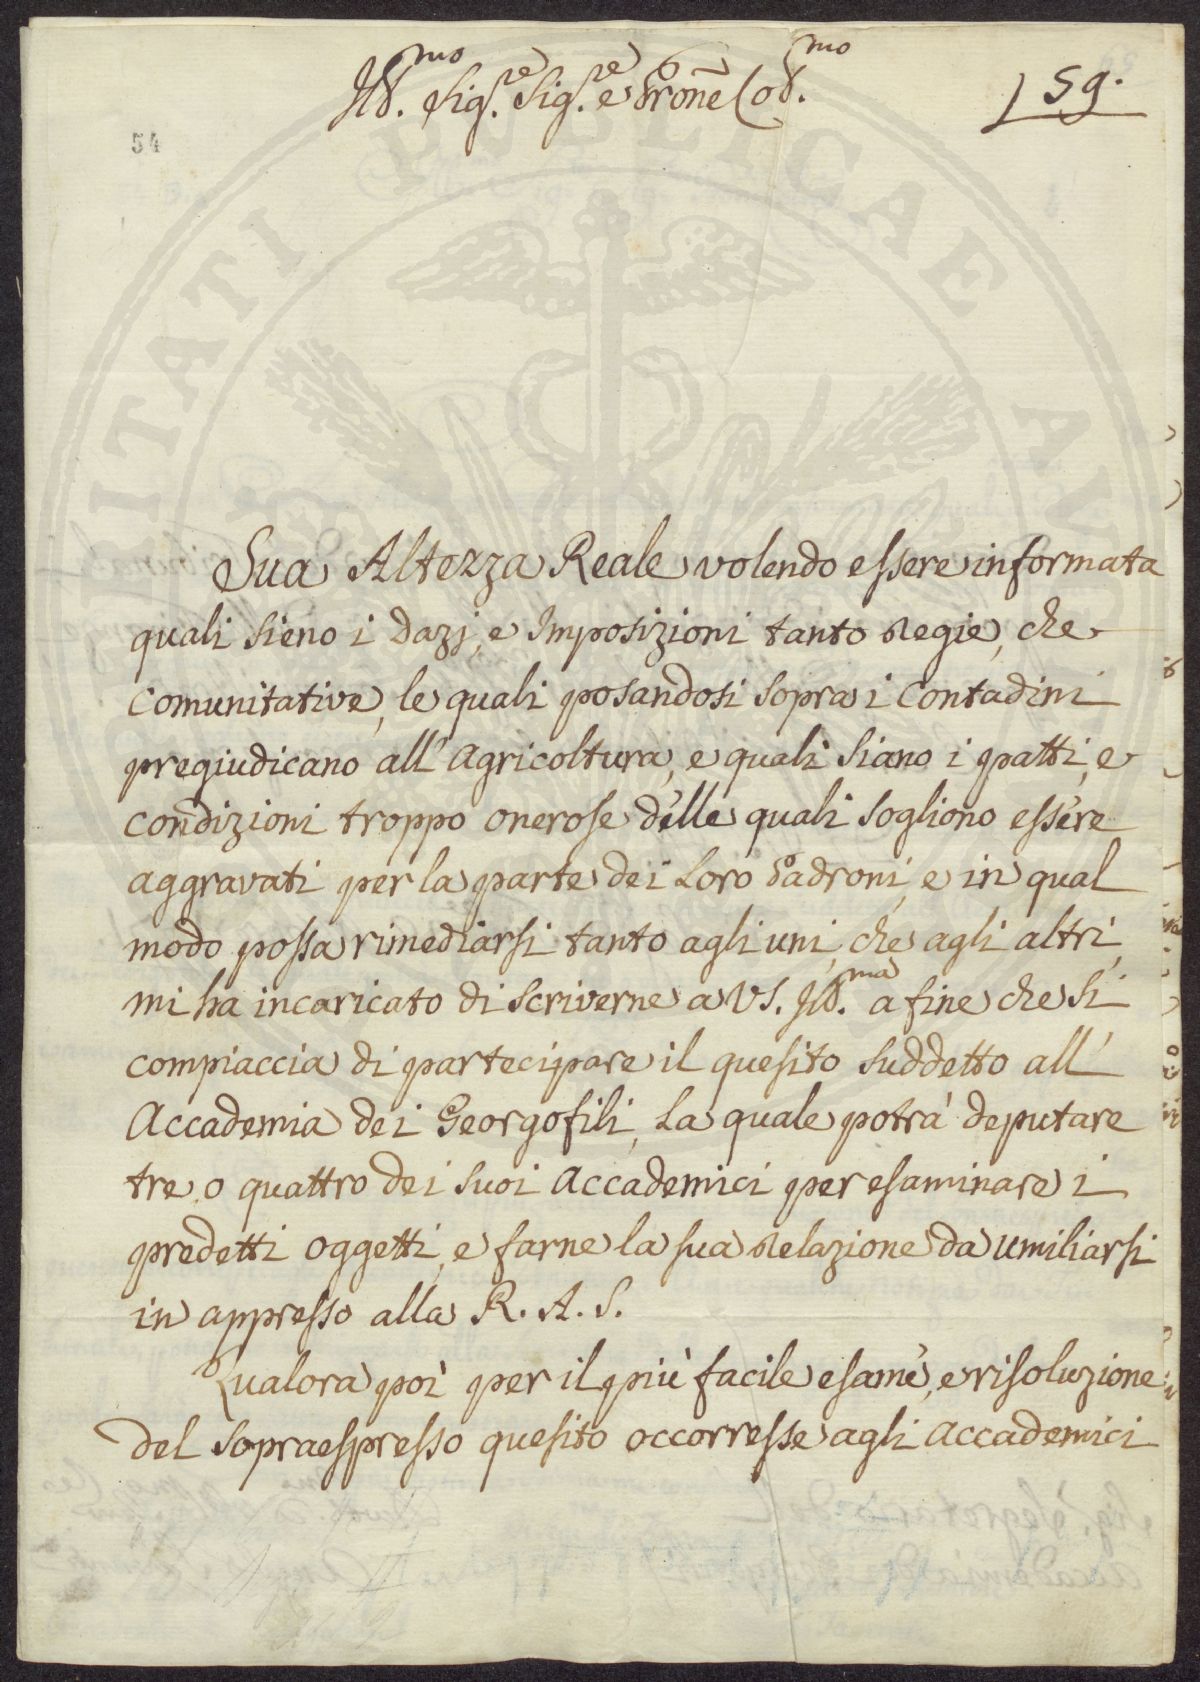 Ill.mo Sig.re Sig.re e Pron̄e Col.mo
59.
54
Sua Altezza Reale volendo essere informata
quali sieno i Dazj, e Imposizioni tanto Regie, che
Comunitative, le quali posandosi sopra i Contadini
pregiudicano all'Agricoltura, e quali siano i patti, e
condizioni troppo onerose delle quali sogliono essere
aggravati per la parte dei Loro Padroni, e in qual
modo possa rimediarsi tanto agli uni, che agli altri,
mi ha incaricato di scriverne a VS. Ill.ma a fine che si
compiaccia di partecipare il quesito suddetto all'
Accademia dei Georgofili, La quale potrà deputare
tre, o quattro dei suoi Accademici per esaminare i
predetti oggetti, e farne la sua Relazione da umiliarsi
in appresso alla R. A. S.
Qualora poi per il più facile esame, e risoluzione
del sopraespresso quesito occorresse agli Accademici
PUBLICAE